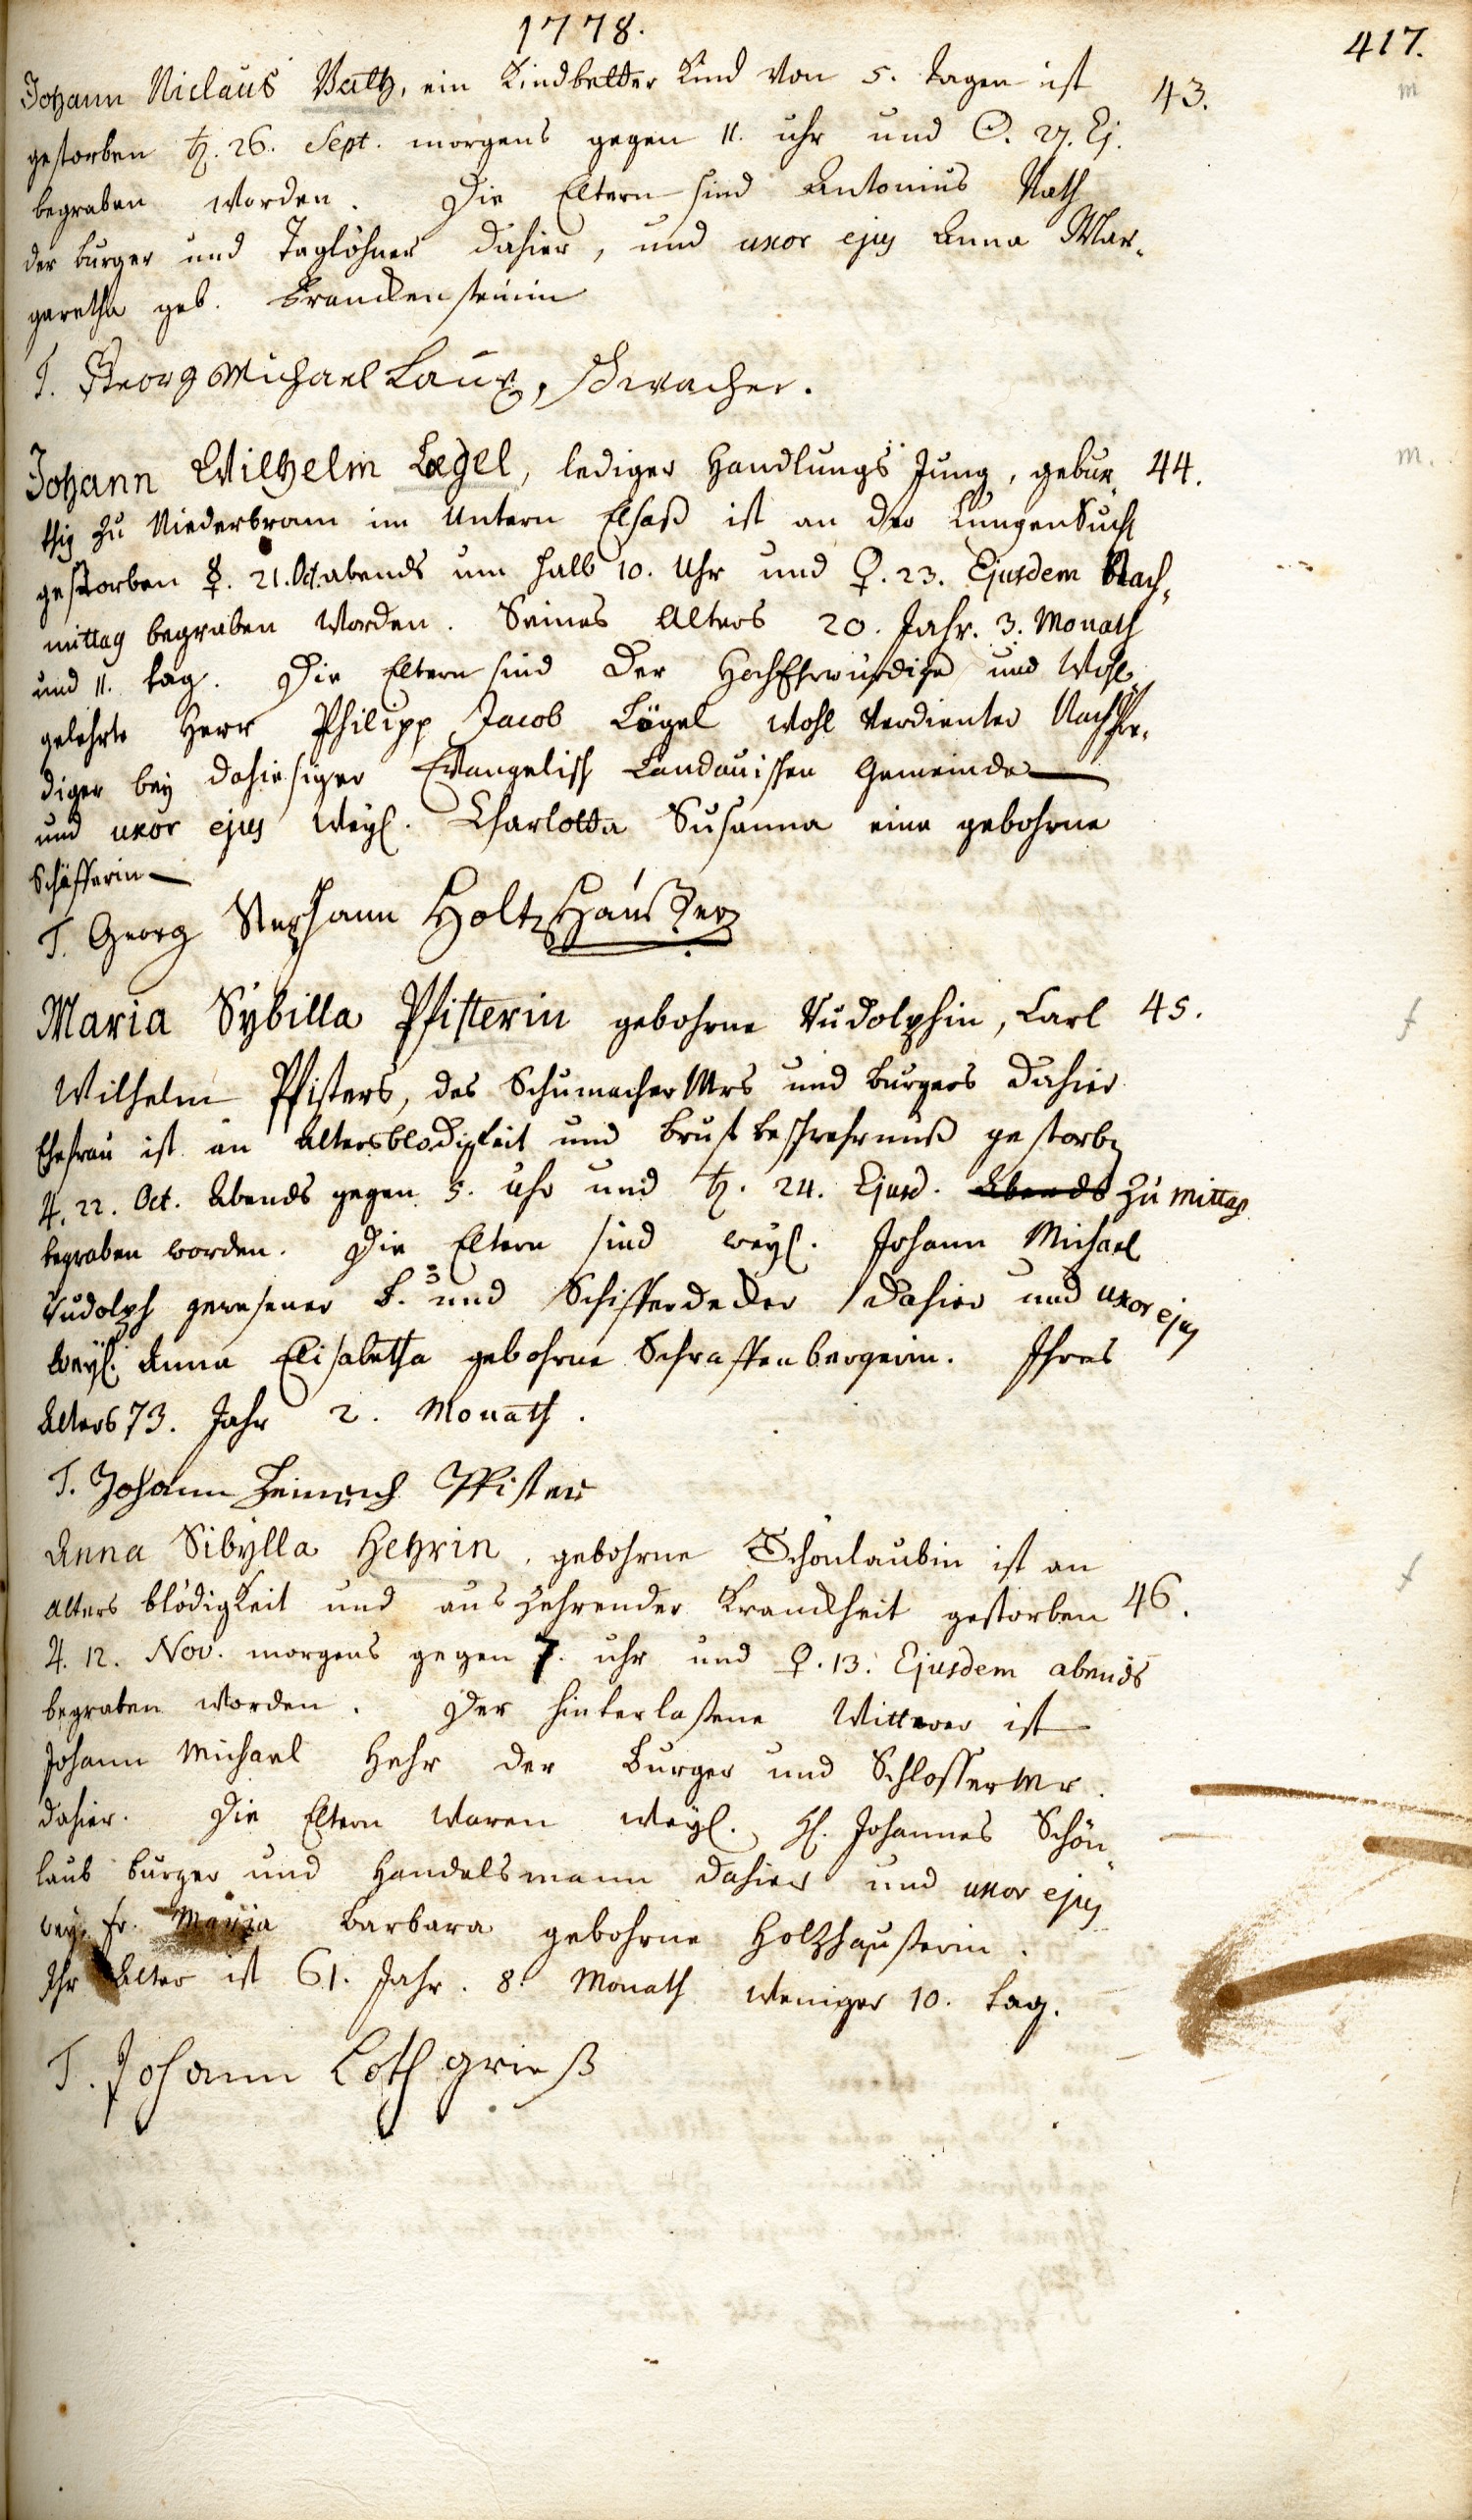 1778.
417.
Johann Niclaus Vath, ein Kindbetter Kind von 5. Tagen ist 43.
m
gestorben ♄. 26. Sept. morgens gegen 11. uhr und ☉. 27. Ej.
begraben worden. Die Eltern sind Antonius Vath
der burger und Taglöhner dahier, und uxor ejus Anna Mar-
garetha geb. Franckensteinin
T. Georg Michael Laux, schwacher.
Johann Wilhelm Lægel, lediger Handlungs Jung, gebür- 44.
m.
thig zu Niederbronn im Untern Elsaß ist an der Lungensucht
gestorben ☿. 21. Oct. abends um halb 10. Uhr und ♀. 23. Ejusdem Nach-
mittag begraben worden. Seines Alters 20. Jahr. 3. Monath
und 11. tag. Die Eltern sind der HochEhrwürdige und Wohl-
gelehrte Herr Philipp Jacob Lögel wohl verdienter NachPre-
diger bey dahiesiger Evangelisch Landauischen Gemeinde
und uxor ejus weyl. Charlotta Susanna eine gebohrne
Schäfferin
T. Georg Stephann Holtzhäußer
Maria Sybilla Pfisterin gebohrne Rudolphin, Carl 45.
f
Wilhelm Pfisters, des Schumacher Mrs und burgers dahier
Ehefrau ist an Altersblödigkeit und brust beschwehrnuß gestorben
♃. 22. Oct. Abends gegen 5. uhr und ♄. 24. Ejusd. Abends zu mittag
begraben worden. Die Eltern sind weyl. Johann Michael
Rudolph gewesener B. und Schifferdecker dahier und uxor ejus
weyl. Anna Elisabetha gebohrne Schraffenbergerin. Ihres
Alters 73. Jahr 2. Monath.
T. Johann Heinrich Pfister
Anna Sibÿlla Hehrin, gebohrne Schönlaubin ist an
f
alters blödigkeit und auszehrender Kranckheit gestorben 46.
♃. 12. Nov. morgens gegen 7. uhr und ♀. 13. Ejusdem abends
begraben worden. Der hinterlaßene Wittwer ist
Johann Michael Hehr der burger und Schlosser Mr.
dahier. Die Eltern waren weyl. H. Johannes Schön-
laub burger und Handelsmann dahier und uxor ejus
weyl. Fr. Maria Barbara gebohrne Holtzhaußerin.
Ihr Alter ist 61. Jahr. 8. Monath weniger 10. tag.
T. Johann Loth grieß